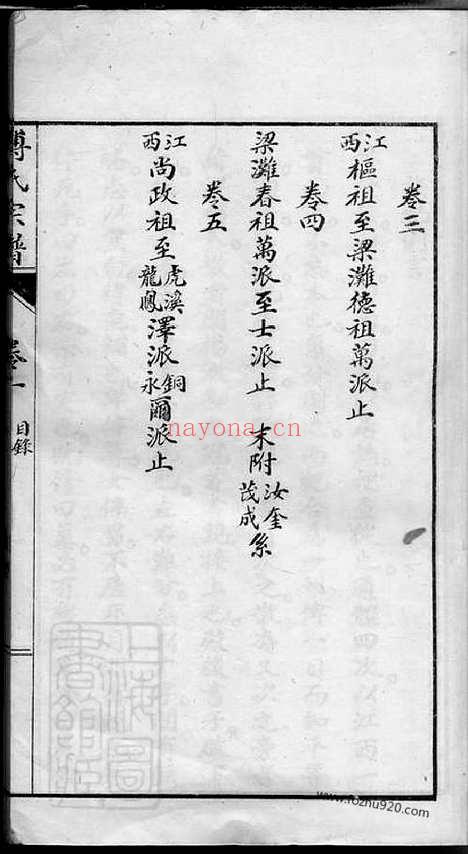 卷三
江西樞祖至梁灘德祖萬派止
卷四
梁灘春祖萬派至士派止 末附汝奎茂成系
卷五
江西尚政祖至虎溪龍鳳澤派銅永爾派止
傅氏宗譜 卷一 目錄
nayona.cn
上海圖書館藏
www.fozhu920.com